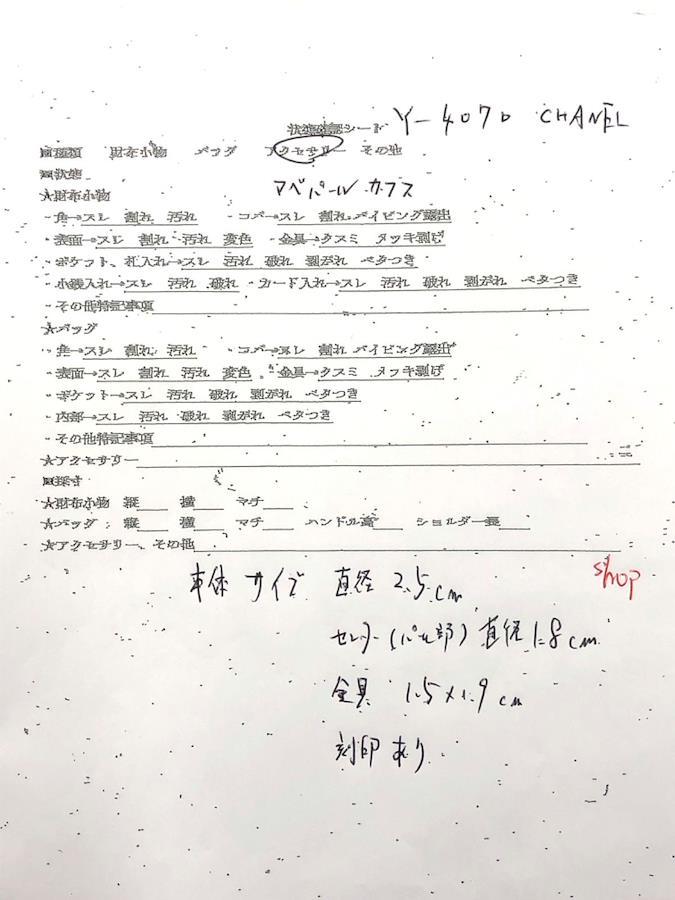 状態確認シート Y-4070 CHANEL
■種類 財布小物 バッグ アクセサリー その他
■状態
マベパール カフス
★財布小物
・角→スレ 割れ 汚れ ・コバ→スレ 割れ パイピング露出
・表面→スレ 割れ 汚れ 変色 ・金具→クスミ メッキ剥げ
・ポケット、札入れ→スレ 汚れ 破れ 剥がれ ベタつき
・小銭入れ→スレ 汚れ 破れ ・カード入れ→スレ 汚れ 破れ 剥がれ ベタつき
・その他特記事項
★バッグ
・角→スレ 割れ 汚れ ・コバ→スレ 割れ パイピング露出
・表面→スレ 割れ 汚れ 変色 ・金具→クスミ メッキ剥げ
・ポケット→スレ 汚れ 破れ 剥がれ ベタつき
・内部→スレ 汚れ 破れ 剥がれ ベタつき
・その他特記事項
★アクセサリー
■採寸
★財布小物 縦 横 マチ
★バッグ 縦 横 マチ ハンドル高 ショルダー長
★アクセサリー、その他
shop
本体 サイズ 直径 2.5cm
センター(パール部) 直径 1.8cm
金具 1.5×1.9cm
刻印あり